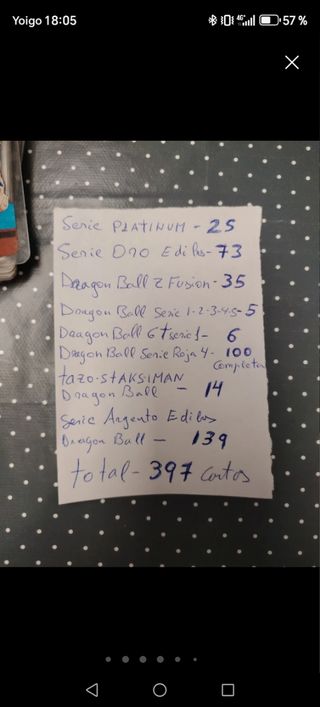 Yoigo 18:05
4G 57 %
Serie PLATINUM - 25
Serie ORO Edibas - 73
Dragon Ball Z Fusion - 35
Dragon Ball Serie 1-2-3-4-5 - 5
Dragon Ball GT serie 1 - 6
Dragon Ball Serie Roja 4 - 100
Completa
tazo-STAKSIMAN
Dragon Ball - 14
Serie Argento Edibas
Dragon Ball - 139
total - 397 Cartas